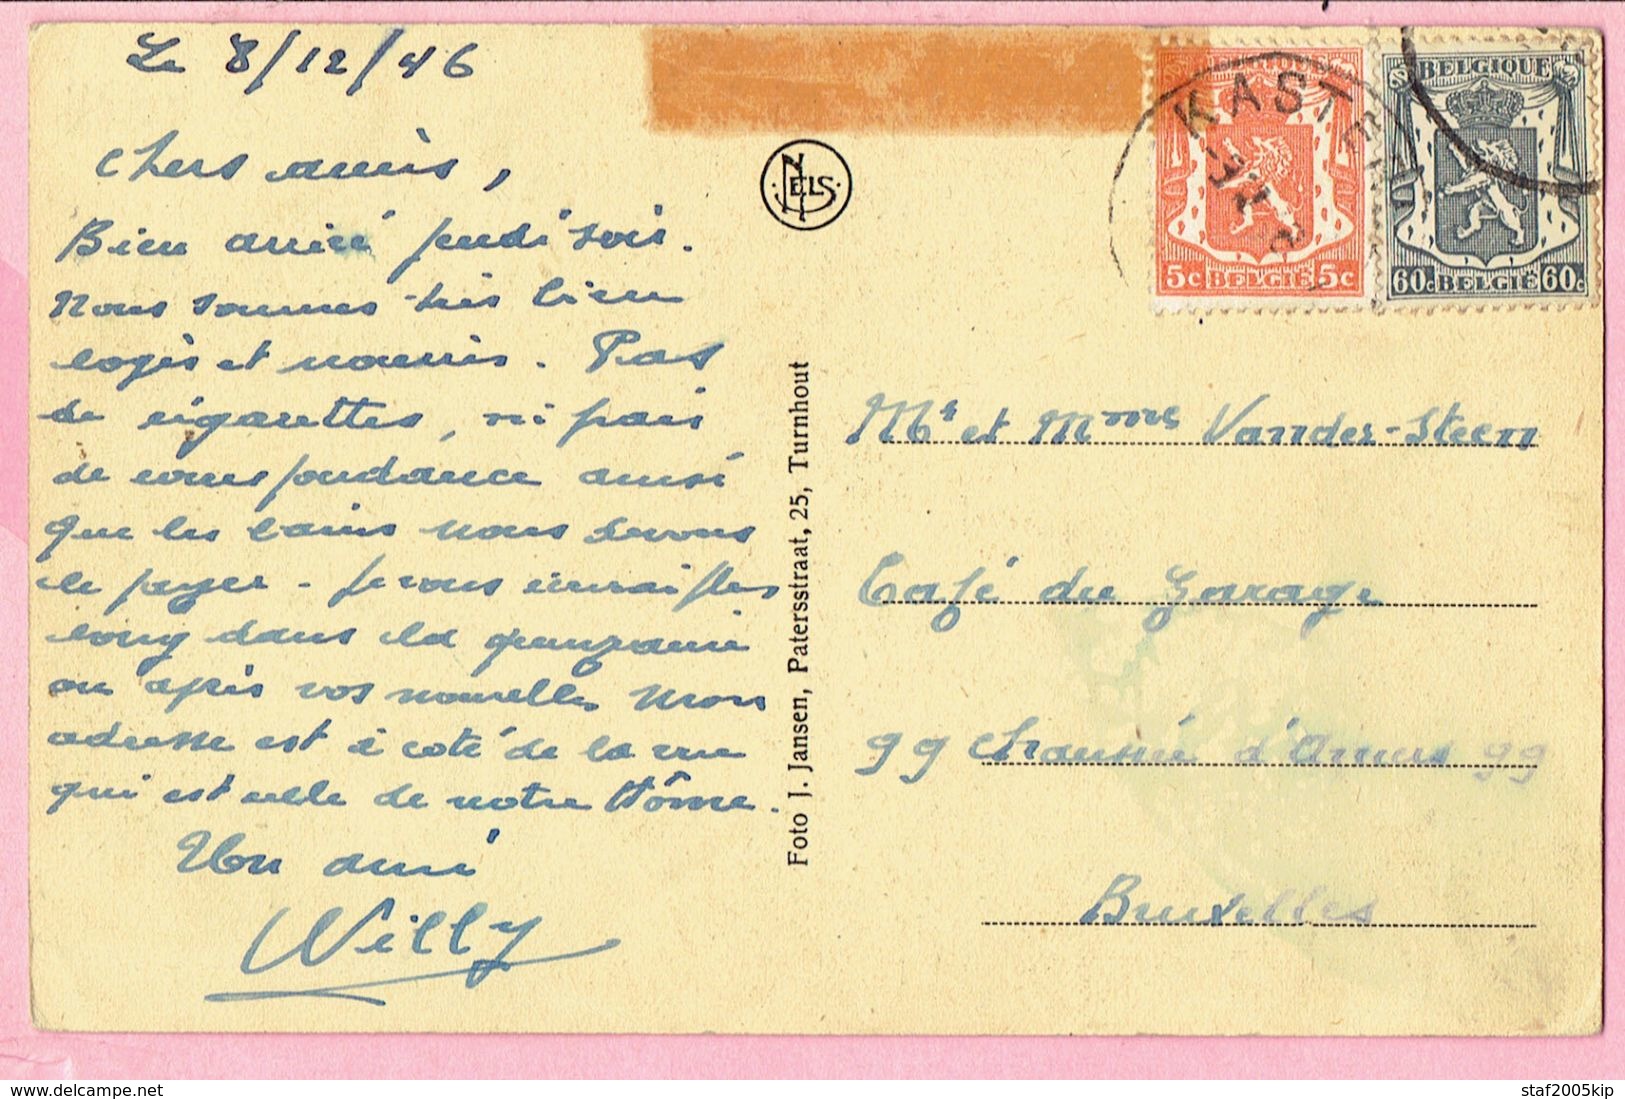 Le 8/12/46
Chers amis,
Bien arrivé jeudi soir.
Nous sommes très bien
logés et nourris. Pas
de cigarettes, ni pais
de correspondance ainsi
que les bains nous devons
le payer - je vous écrirai plus
long dans la quinzaine
ou après vos nouvelles Mon
adresse est à coté de la vue
qui est celle de notre Hôme.
Un ami
Willy
NELS
Foto J. Jansen, Patersstraat, 25, Turnhout
KASTE
BELGIQUE
5c BELGIË 5c
BELGIQUE
60c BELGIË 60c
Mr et Mme Vander-Steen
Café du Garage
99 Chaussée d'Anvers 99
Bruxelles
delcampe.net
staf2005kip